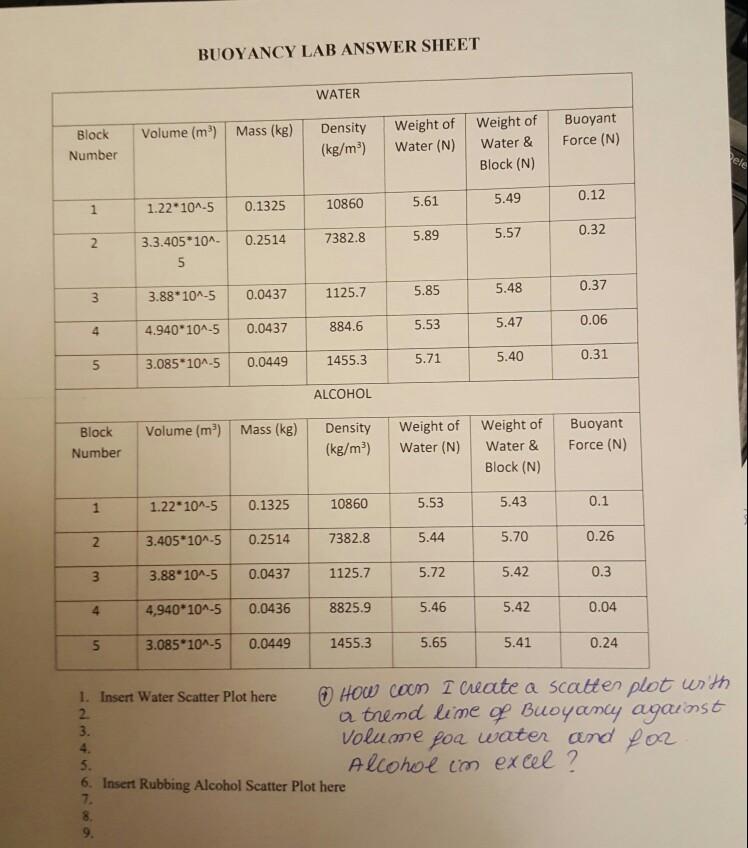 BUOYANCY LAB ANSWER SHEET
WATER
Block Number | Volume (m³) | Mass (kg) | Density (kg/m³) | Weight of Water (N) | Weight of Water & Block (N) | Buoyant Force (N)
1 | 1.22*10^-5 | 0.1325 | 10860 | 5.61 | 5.49 | 0.12
2 | 3.3.405*10^-5 | 0.2514 | 7382.8 | 5.89 | 5.57 | 0.32
3 | 3.88*10^-5 | 0.0437 | 1125.7 | 5.85 | 5.48 | 0.37
4 | 4.940*10^-5 | 0.0437 | 884.6 | 5.53 | 5.47 | 0.06
5 | 3.085*10^-5 | 0.0449 | 1455.3 | 5.71 | 5.40 | 0.31
ALCOHOL
Block Number | Volume (m³) | Mass (kg) | Density (kg/m³) | Weight of Water (N) | Weight of Water & Block (N) | Buoyant Force (N)
1 | 1.22*10^-5 | 0.1325 | 10860 | 5.53 | 5.43 | 0.1
2 | 3.405*10^-5 | 0.2514 | 7382.8 | 5.44 | 5.70 | 0.26
3 | 3.88*10^-5 | 0.0437 | 1125.7 | 5.72 | 5.42 | 0.3
4 | 4,940*10^-5 | 0.0436 | 8825.9 | 5.46 | 5.42 | 0.04
5 | 3.085*10^-5 | 0.0449 | 1455.3 | 5.65 | 5.41 | 0.24
1. Insert Water Scatter Plot here
2.
3.
4.
5.
6. Insert Rubbing Alcohol Scatter Plot here
7.
8.
9.
How can I create a scatter plot with
a trend line of Buoyancy against
Volume for water and for
Alcohol in excel?